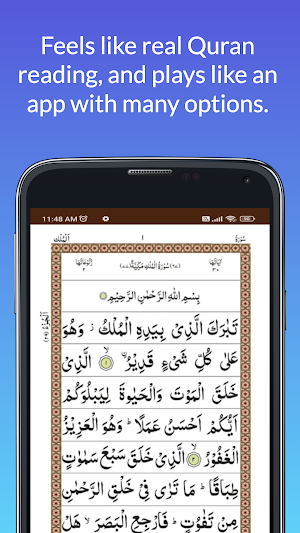 Feels like real Quran
reading, and plays like an
app with many options.
11:48 AM
اَلْمُلْك ١ سُوْرَةُ
اٰيَاتُهَا ٣٠ (٦٧) سُوْرَةُ الْمُلْكِ مَكِّيَّةٌ (٧٧) رُكُوْعَاتُهَا ٢
بِسْمِ اللّٰهِ الرَّحْمٰنِ الرَّحِيْمِ
تَبٰرَكَ الَّذِىْ بِيَدِهِ الْمُلْكُ ز وَهُوَ
عَلٰى كُلِّ شَىْءٍ قَدِيْرُ ۙ ۝١ الَّذِىْ
خَلَقَ الْمَوْتَ وَالْحَيٰوةَ لِيَبْلُوَكُمْ
اَيُّكُمْ اَحْسَنُ عَمَلًا ؕ وَهُوَ الْعَزِيْزُ
الْغَفُوْرُ ۙ ۝٢ الَّذِىْ خَلَقَ سَبْعَ سَمٰوٰتٍ
طِبَاقًا ؕ مَا تَرٰى فِىْ خَلْقِ الرَّحْمٰنِ
مِنْ تَفٰوُتٍ ؕ فَارْجِعِ الْبَصَرَ ۙ هَلْ